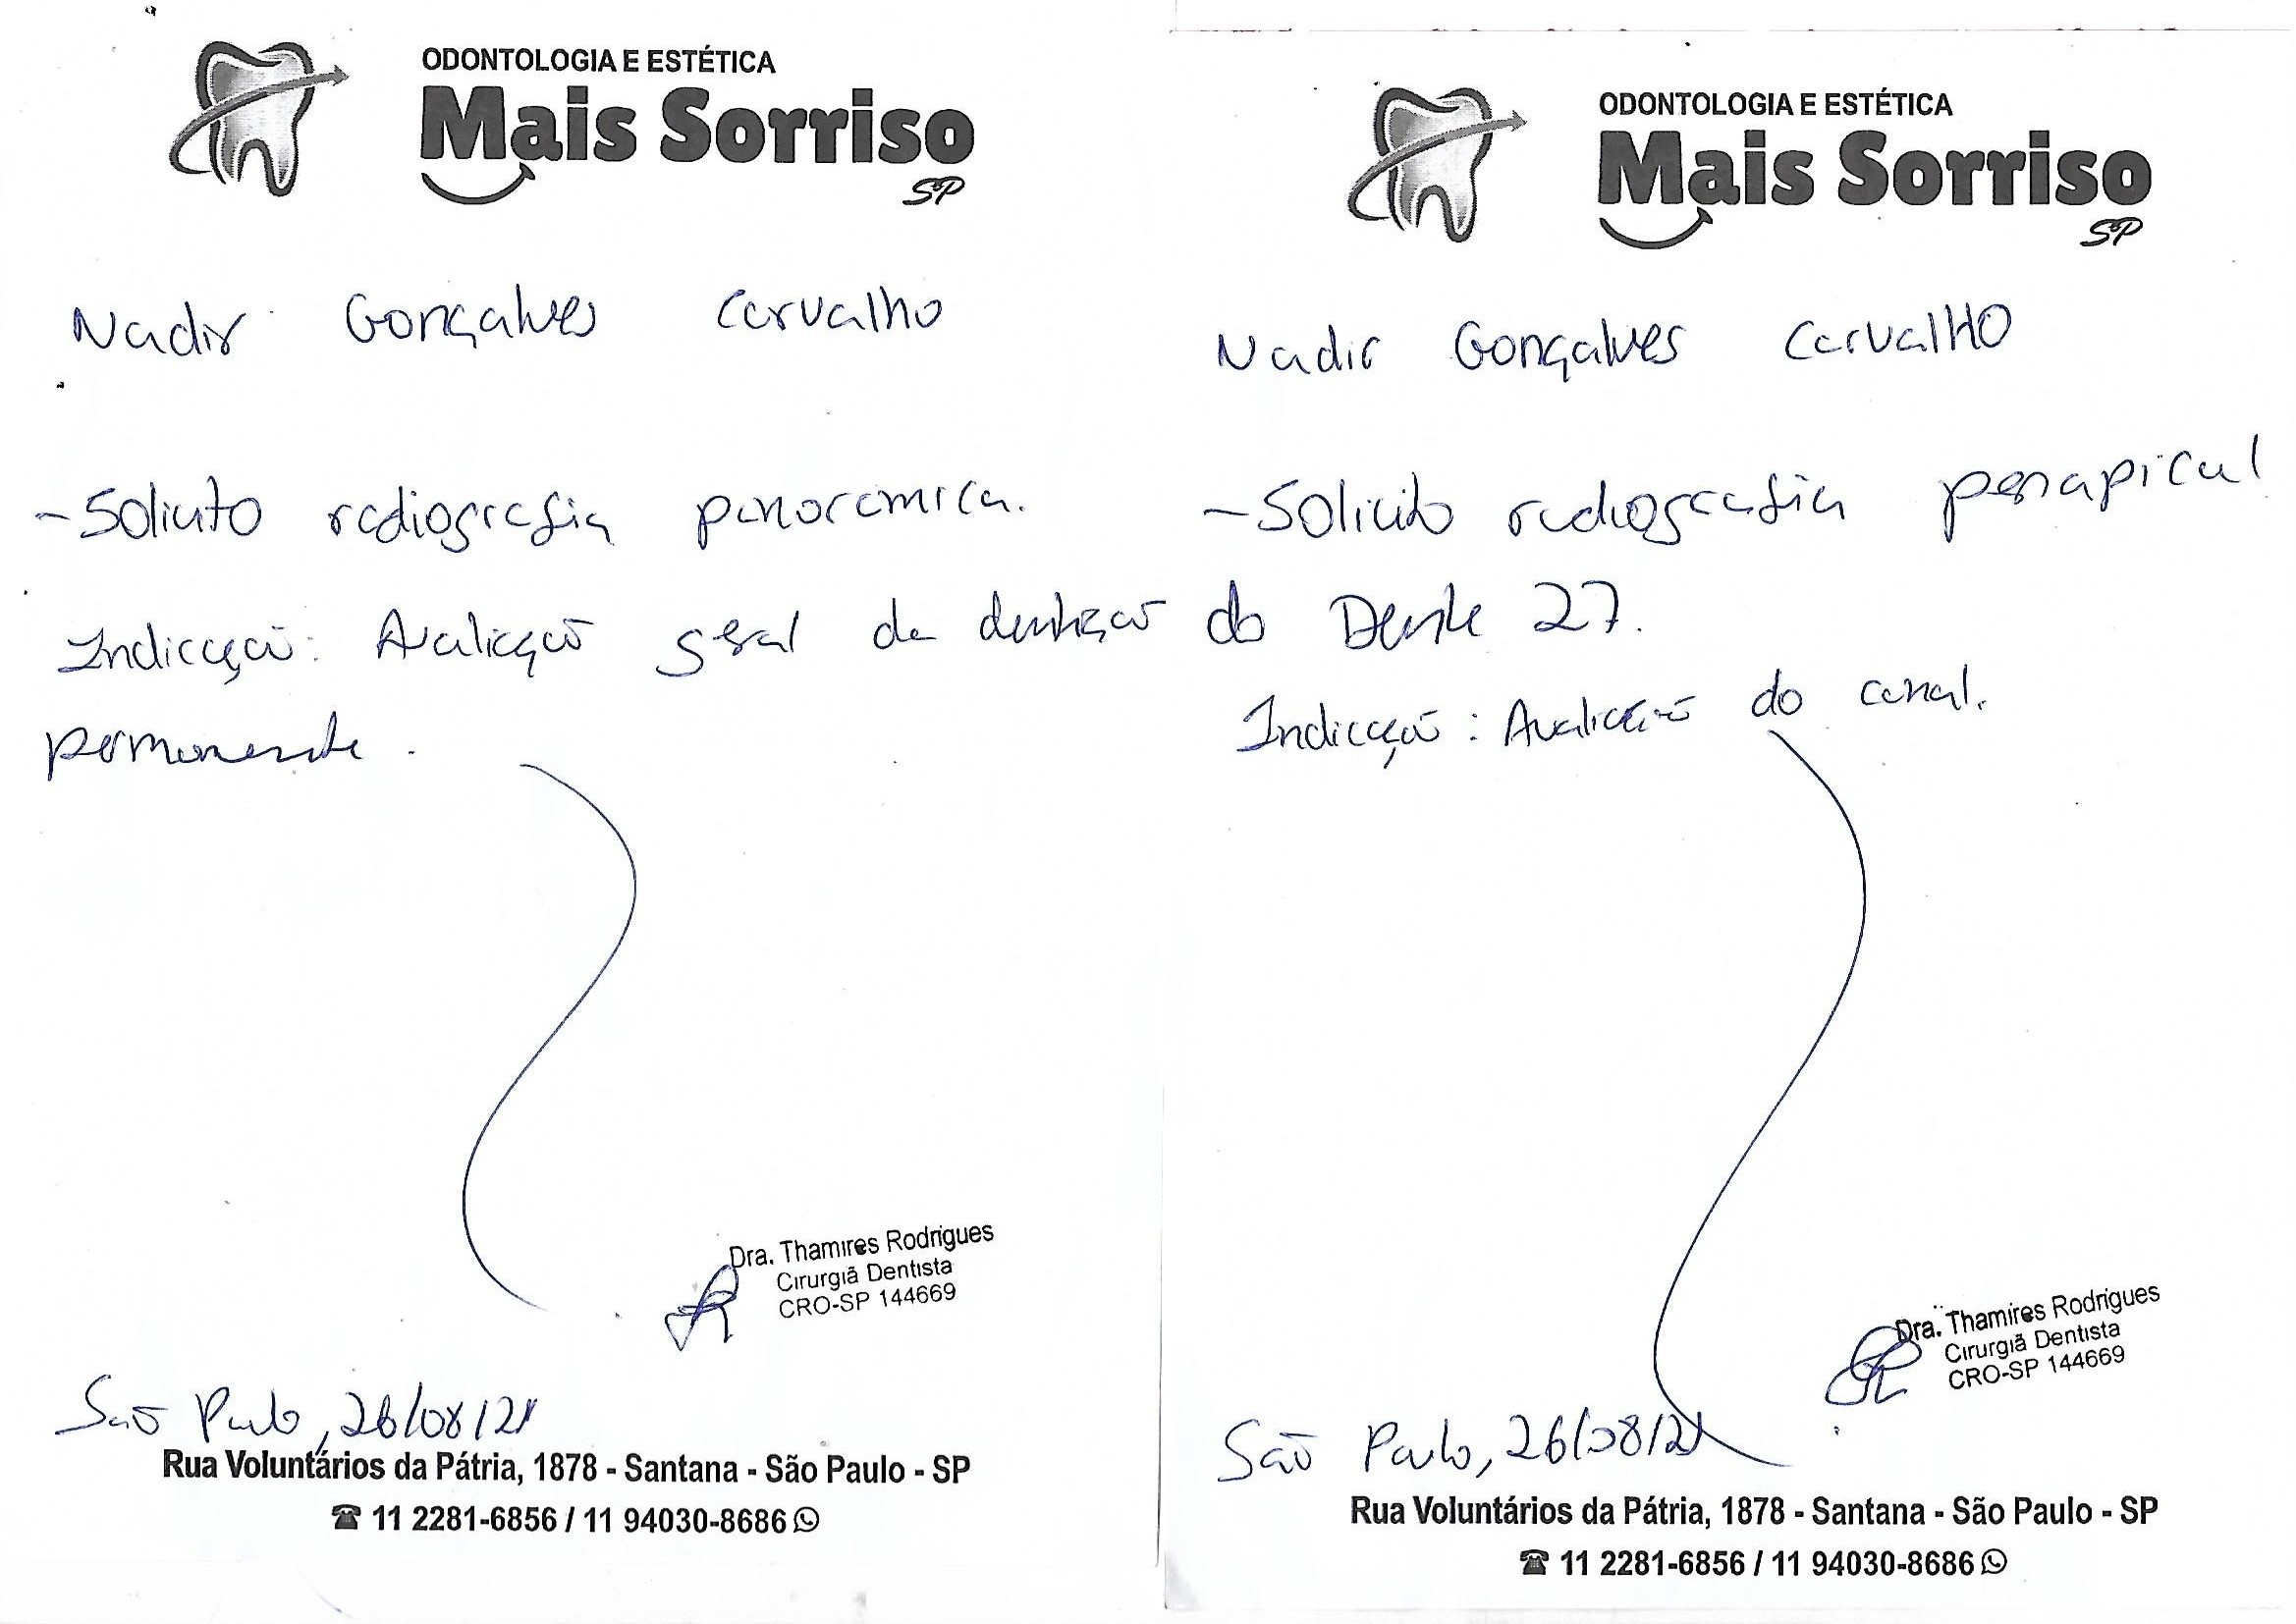 ODONTOLOGIA E ESTÉTICA
Mais Sorriso
SP
Nadir Gonçalves Carvalho
- Solicito radiografia panoramica.
Indicação: Avaliação geral da dentição
permanente.
Dra. Thamires Rodrigues
Cirurgiã Dentista
CRO-SP 144669
São Paulo, 26/08/21
Rua Voluntários da Pátria, 1878 - Santana - São Paulo - SP
☎ 11 2281-6856 / 11 94030-8686
ODONTOLOGIA E ESTÉTICA
Mais Sorriso
SP
Nadir Gonçalves Carvalho
- Solicito radiografia periapical
do Dente 27.
Indicação: Avaliação do canal.
Dra. Thamires Rodrigues
Cirurgiã Dentista
CRO-SP 144669
São Paulo, 26/08/21
Rua Voluntários da Pátria, 1878 - Santana - São Paulo - SP
☎ 11 2281-6856 / 11 94030-8686